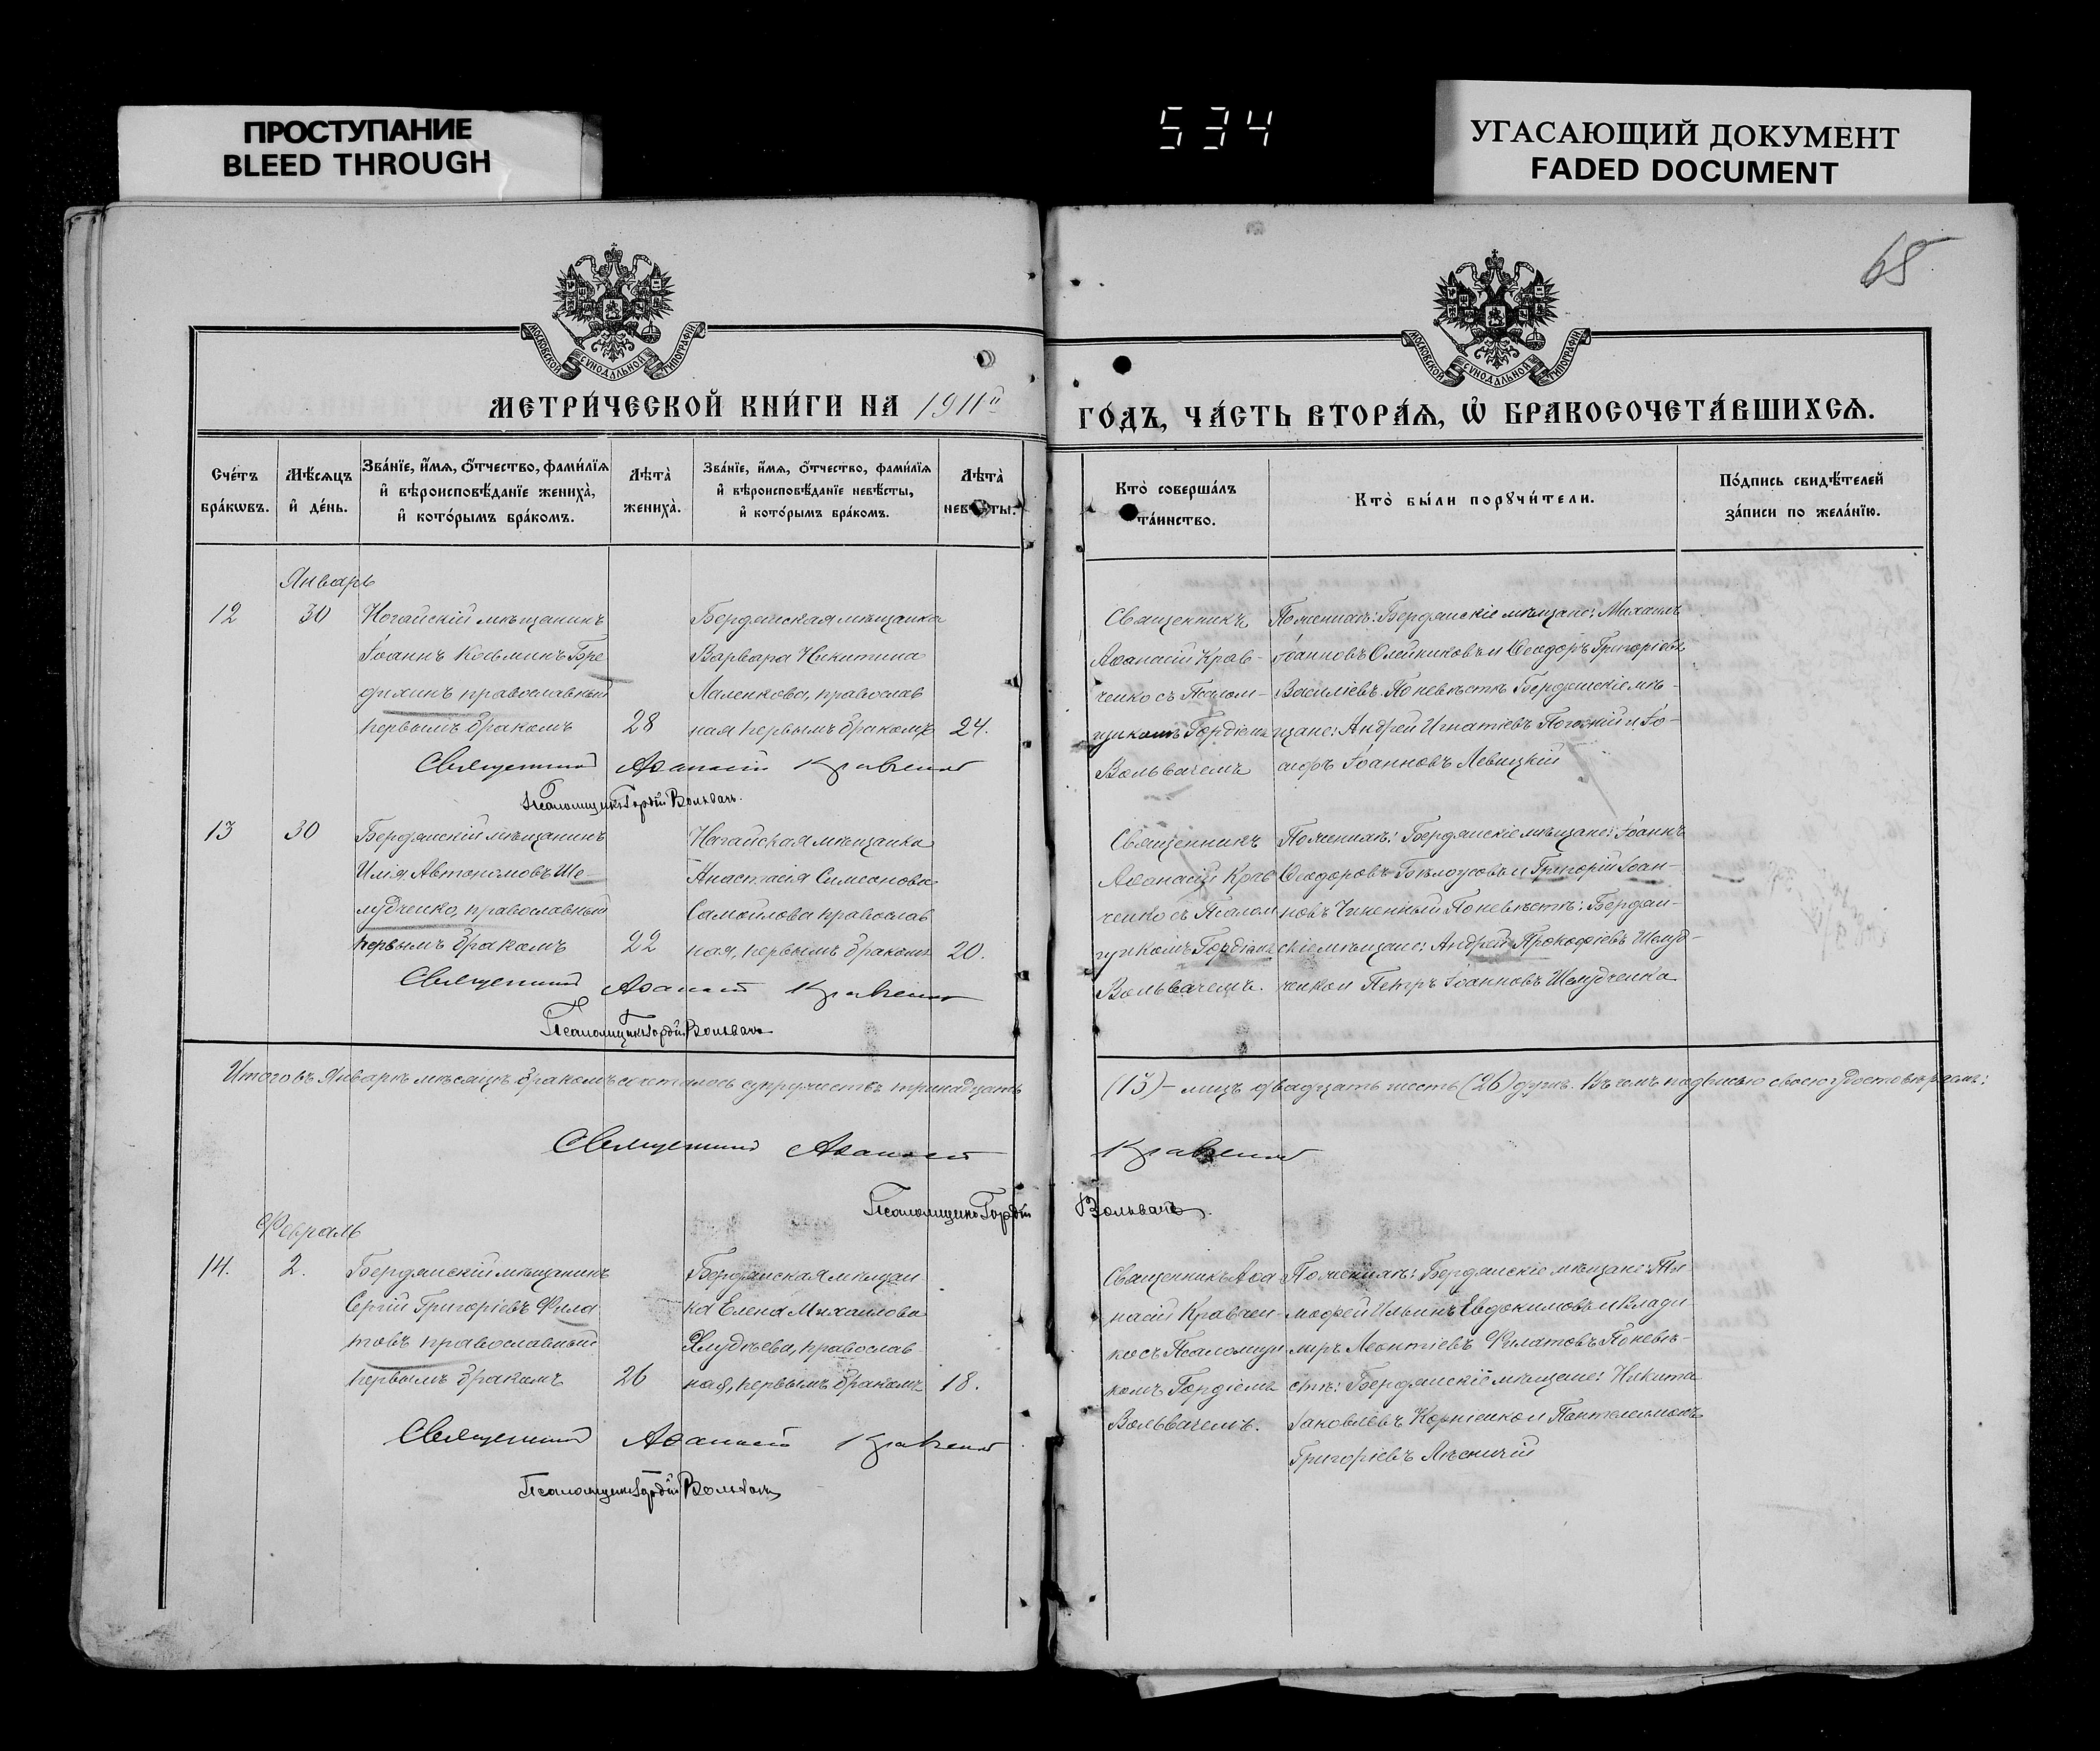 ПРОСТУПАНИЕ
BLEED THROUGH
534
УГАСАЮЩИЙ ДОКУМЕНТ
FADED DOCUMENT
65
МОСКОВСКОЙ СУНОДАЛЬНОЙ ТИПОГРАФІИ
МОСКОВСКОЙ СУНОДАЛЬНОЙ ТИПОГРАФІИ
МЕТРИ́ЧЕСКОЙ КНИ́ГИ НА 1911й
ГО́ДЪ, ЧА́СТЬ ВТОРА́Ѧ, Ѡ҆ БРАКОСОЧЕТА́ВШИХСѦ.
Сче́тъ бра́кѡвъ.
Мѣ́сѧцъ и҆ де́нь.
Зва́нїе, и҆́мѧ, ѻ҆́тчество, фами́лїѧ
и҆ вѣроисповѣ́данїе жениха̀,
и҆ кото́рымъ бра́комъ.
Лѣта̀ жениха̀.
Зва́нїе, и҆́мѧ, ѻ҆́тчество, фами́лїѧ
и҆ вѣроисповѣ́данїе невѣ́сты,
и҆ кото́рымъ бра́комъ.
Лѣта̀
Кто̀ соверша́лъ та́инство.
Кто̀ бы́ли порꙋчи́тели.
По́дпись свидѣ́телей
за́писи по жела́нїю.
Январь
12 30 Ногайскій мѣщанинъ
Іоаннъ Косьминъ Бре
дихинъ православный
первымъ бракомъ 28
Бердянская мѣщанка
Варвара Никитина
Маленкова, православ
ная первымъ бракомъ 24.
Священникъ
Аѳанасій Крав-
ченко съ Псалом-
щикомъ Гордіемъ
Вольвачемъ
По женихѣ: Бердянскіе мѣщане: Михаилъ
Іоанновъ Олейниковъ и Ѳеодоръ Григорьевъ
Василіевъ. По невѣстѣ Бердянскіе мѣ-
щане: Андрей Игнатіевъ и Іо-
сифъ Іоанновъ Левицкій
Священникъ Аѳанасій Кравченко
Псаломщикъ Гордій Вольвачъ.
13 30 Бердянскій мѣщанинъ
Илія Автономовъ Ше-
лудченко, православный
первымъ бракомъ 22
Ногайская мѣщанка
Анастасія Симеонова
Самойлова православ
ная, первымъ бракомъ 20.
Священникъ
Аѳанасій Крав
ченко съ Псалом
щикомъ Гордіемъ
Вольвачемъ.
По женихѣ: Бердянскіе мѣщане: Іоаннъ
Ѳеодоровъ Бѣлоусовъ и Григорій Іоан-
новъ По невѣстѣ: Бердян-
скіе мѣщане: Андрей Прокофіевъ Шелуд-
ченко и Петръ Іоанновъ Шелудченко
Священникъ Аѳанасій Кравченко
Псаломщикъ Гордій Вольвачъ
Итого въ Январѣ мѣсяцѣ бракомъ сочеталось супружествъ тринадцать (13) – лицъ двадцать шесть (26) душъ. Въ чемъ подписью своею удостовѣряемъ:
Священникъ Аѳанасій Кравченко
Псаломщикъ Гордій Вольвачъ.
Февраль
14. 2. Бердянскій мѣщанинъ
Сергій Григоріевъ Фила
товъ православный
первымъ бракомъ 26
Бердянская мѣщан
ка Елена Михаилова
Хлудѣева, православ
ная, первымъ бракомъ 18.
Священникъ Аѳа
насій Кравчен
ко съ Псаломщи
комъ Гордіемъ
Вольвачемъ.
По женихѣ: Бердянскіе мѣщане: Ти
моѳей Ильинъ Евдокимовъ и Влади
миръ Леонтіевъ Филатовъ По невѣ-
стѣ: Бердянскіе мѣщане: Никита
Іаковлевъ Корніенко и Пантелеимонъ
Григоріевъ Лѣсничій
Священникъ Аѳанасій Кравченко
Псаломщикъ Гордій Вольвачъ